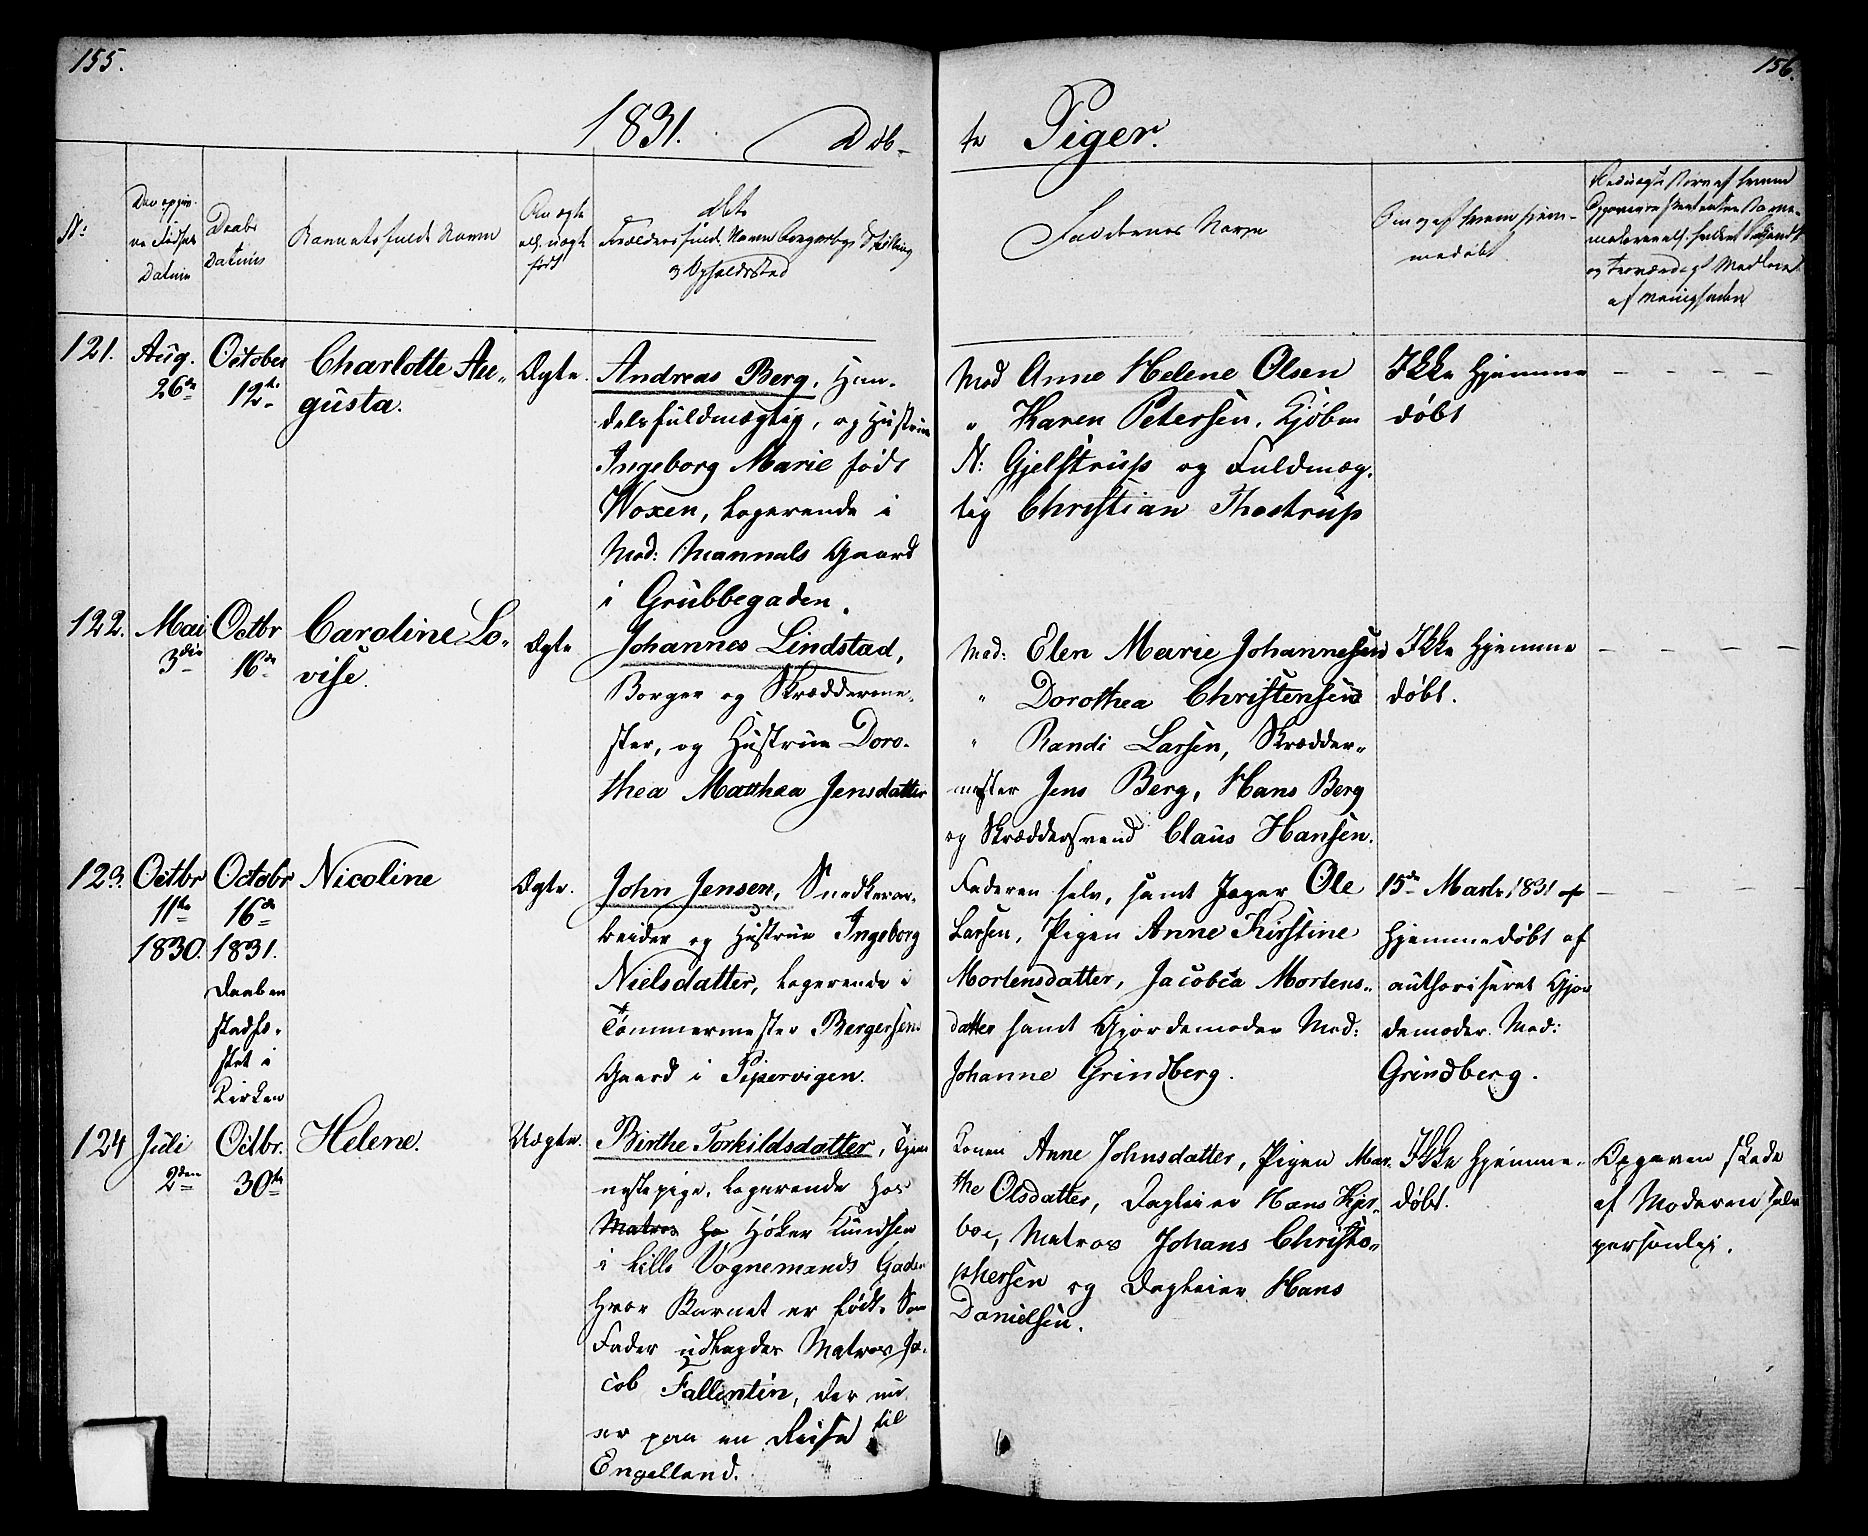 155.
156.
1831. Döb-
te Piger.
N:
Den opgiv-
ne Fødsels
Datum
Daabs
Datum
Barnets fulde Navn
Om ægte
ell. uægte
født
Forældres fulde Navn
og Opholdssted
Faddernes Navn
Om og af hvem hjem-
medøbt
og troværdigt Medlem
af Menigheden
121.
Aug.
26de
October
12te
Charlotte Au-
gusta.
Ægte.
Andreas Berg, Han-
delsfuldmægtig, og Hustrue
Ingeborg Marie født
Woxen, Logerende i
Mad: Mannals Gaard
i Grubbegaden.
Mad Anne Helene Olsen
" Karen Petersen, Kjøbm
N: Gjelstrup og Fuldmæg-
tig Christian Thostrup
Ikke hjemme
døbt
122.
Mai
3die
Octbr
16de
Caroline Lo-
vise.
Ægte
Johannes Lindstad,
Borger og Skræddereme-
ster, og Hustrue Doro-
thea Matthea Jensdatter
Mad: Elen Marie Johannesen
" Dorothea Christensen
" Randi Larsen, Skrædder-
mester Jens Berg, Hans Berg
og Skræddersvend Claus Hansen.
Ikke hjemme
døbt.
123.
Octbr
11te
1830.
Octobr
16de
1831.
Daaben
stadfæ-
stet i
Kirken
Nicoline
Ægte.
John Jensen, Snedkerar-
beider og Hustrue Ingeborg
Nielsdatter, Logerende i
Tømmermester Bergersens
Gaard i Pipervigen.
Faderen selv, samt Jæger Ole
Larsen, Pigen Anne Kirstine
Mortensdatter, Jacobea Mortens-
datter samt Gjordemoder Mad:
Johanne Grindberg.
15de Marts 1831
hjemmedøbt af
authoriseret Gjor
demoder Mad:
Grindberg.
124
Juli
2den
Octbr.
30te
Helene.
Uægte.
Birthe Torkildsdatter, Tjene
nestepige, Logerende hos
Matros Høker Knudsen
i Lille Vognemands Gaden
hvor Barnet er født. Som
Fader udlagdes Matros Ja-
cob Fallentin, der nu
er paa en Reise til
Engelland.
Konen Anne Johnsdatter, Pigen Mar-
the Olsdatter, Dagleier Hans Kjer-
boe, Matros Johans Christo-
phersen og Dagleier Hans
Danielsen.
Ikke hjemme-
døbt.
Opgaven skede
af Moderen selv
personlig.